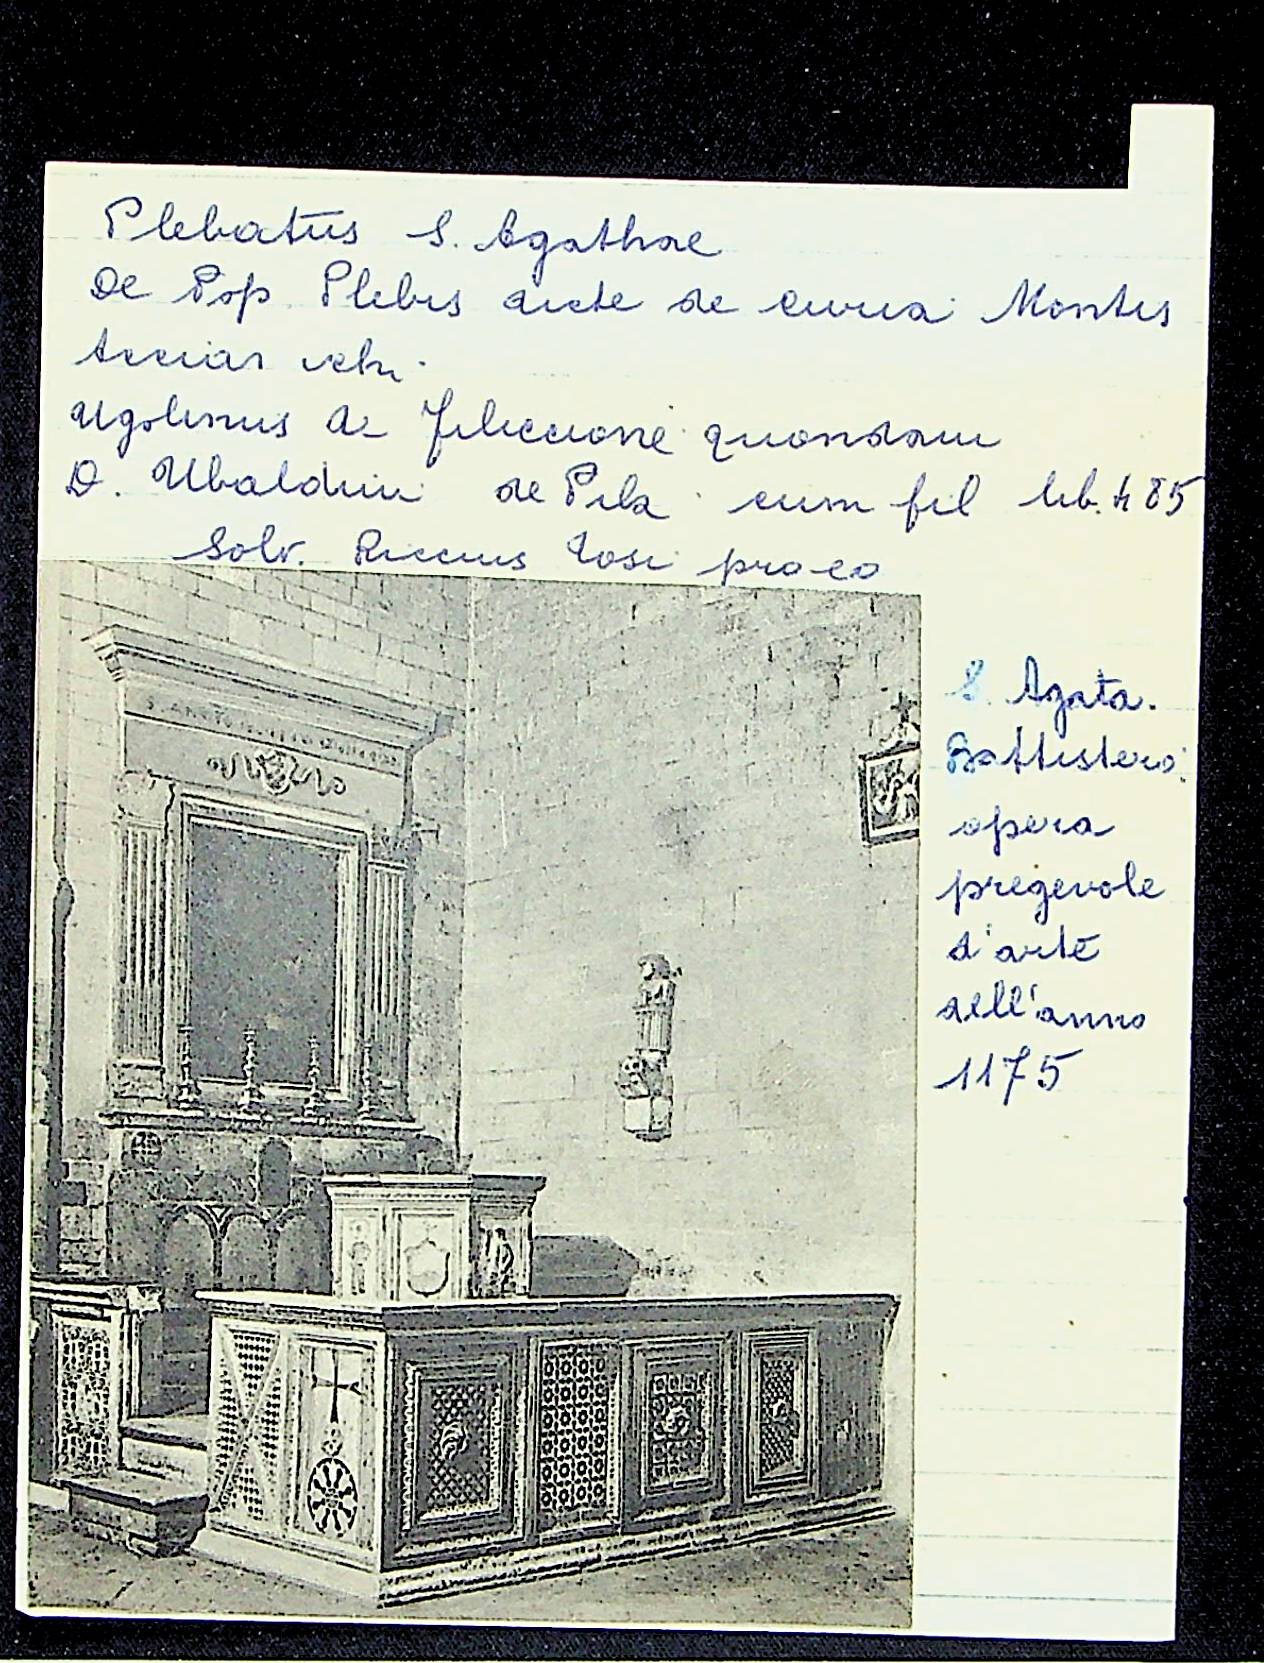 Plebatus S. Agathae
De Pop. Plebis dicte de curia Montis
Accian veti.
Ugolinus de Feliccione quondam
D. Ubaldini de Pila cum fil lib. h 85
Solv. Riccus Tosi pro eo
S. Agata.
Battistero:
opera
pregevole
d'arte
dell'anno
1175